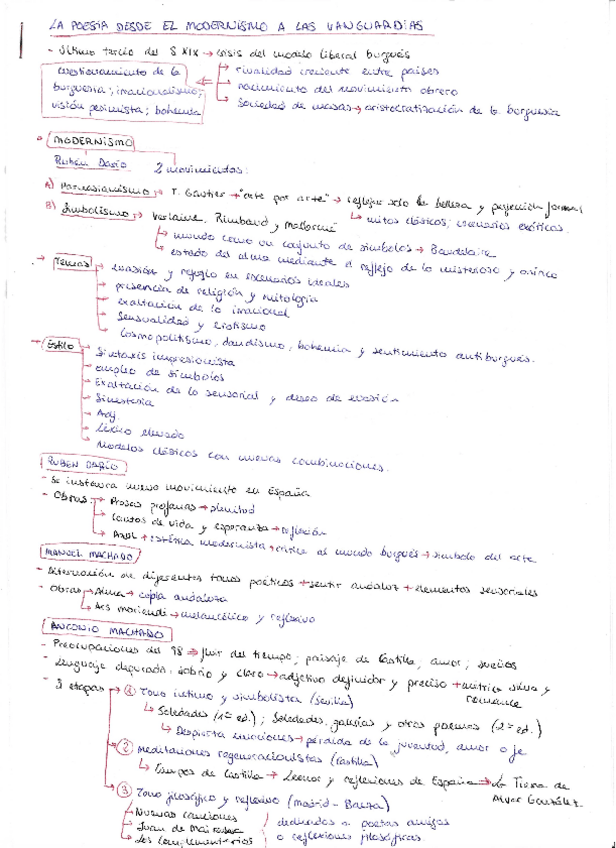 LA POESÍA DESDE EL MODERNISMO A LAS VANGUARDIAS
- Último tercio del S XIX → crisis del modelo liberal burgués
cuestionamiento de la burguesía; irracionalismo; visión pesimista; bohemia
→ rivalidad creciente entre países
→ nacimiento del movimiento obrero
→ Sociedad de masas → aristocratización de la burguesía
MODERNISMO
Rubén Darío 2 movimientos:
A) Parnasianismo → T. Gautier → "arte por arte" → reflejar solo la belleza y perfección formal
↳ mitos clásicos; escenarios exóticos.
B) Simbolismo → Verlaine, Rimbaud y Mallarmé
↳ mundo como un conjunto de símbolos → Baudelaire
↳ estado del alma mediante el reflejo de lo misterioso y onírico
- Temas → evasión y refugio en escenarios ideales
→ presencia de religión y mitología
→ exaltación de lo irracional
→ Sensualidad y erotismo
→ Cosmopolitismo, dandismo, bohemia y sentimiento antiburgués.
- Estilo → Sintaxis impresionista
- empleo de símbolos
- Exaltación de lo sensorial y deseo de evasión
- Sinestesia
- Adj.
- Léxico elevado
- Modelos clásicos con nuevas combinaciones.
RUBÉN DARÍO
- Se instaura nuevo movimiento en España
- Obras → Prosas profanas → plenitud
→ Cantos de vida y esperanza → reflexión
→ Azul → estética modernista + crítica al mundo burgués → símbolo del arte
MANUEL MACHADO
- Alternación de diferentes tonos poéticos + sentir andaluz + elementos sensoriales
- Obras → Alma → copla andaluza
→ Ars moriendi → melancólico y reflexivo
ANTONIO MACHADO
- Preocupaciones del 98 → fluir del tiempo; paisaje de Castilla; amor; sueños
- Lenguaje depurado, sobrio y claro → adjetivo definidor y preciso + métrica silva y romance
- 3 etapas → ① Tono íntimo y simbolista (Sevilla)
↳ Soledades (1ª ed.); Soledades, galerías y otros poemas (2ª ed.)
↳ Despierta emociones → pérdida de la juventud, amor o fe
② meditaciones regeneracionistas (Castilla)
↳ Campos de Castilla → Leonor y reflexiones de España → La Tierra de Alvar González.
③ Tono filosófico y reflexivo (Madrid - Baeza)
Nuevas canciones
Juan de Mairena
Los complementarios
dedicados a poetas amigos
o reflexiones filosóficas.